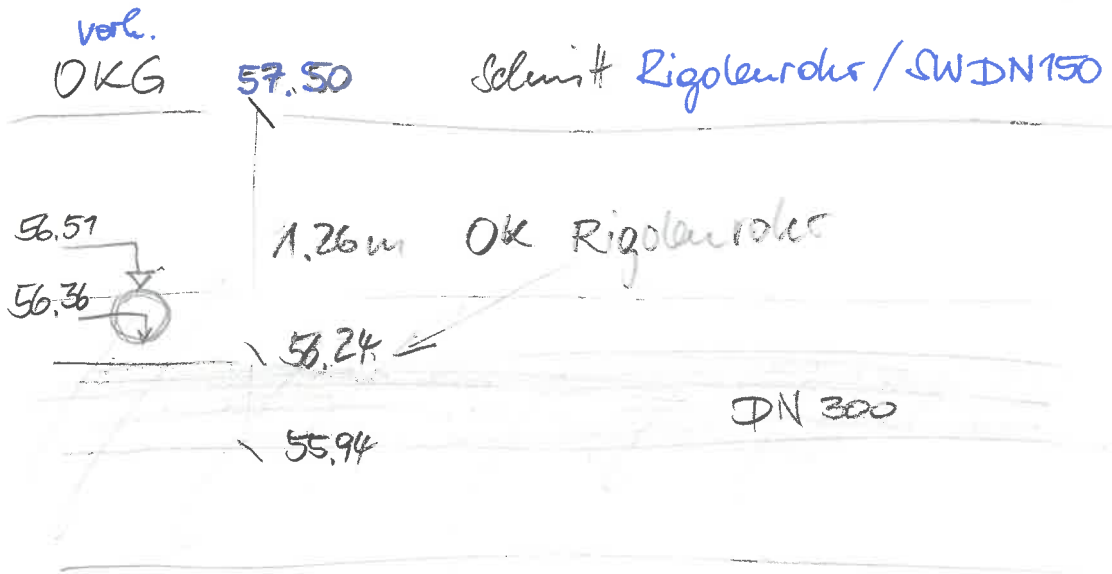 vorh.
OKG 57.50 Schnitt Rigolenrohr / SW DN150
56.51
1.26m OK Rigolenrohr
56.36
56.24
DN 300
55.94